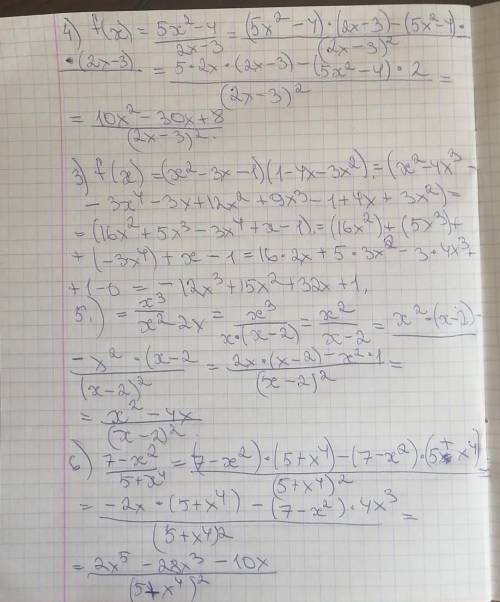 4) f(x) = \frac{5x²-4}{2x-3} = \frac{(5x²-4)·(2x-3)-(5x²-4)·}{(2x-3)²}
\frac{·(2x-3)}{} = \frac{5·2x·(2x-3)-(5x²-4)·2}{(2x-3)²} =
= \frac{10x²-30x+8}{(2x-3)²}.
3) f(x) = (x²-3x-1)(1-4x-3x²) = (x²-4x³-
-3x⁴-3x+12x²+9x³-1+4x+3x²) =
= (16x²+5x³-3x⁴+x-1) = (16x²)+(5x³)+
+(-3x⁴)+x-1 = 16·2x+5·3x²-3·4x³+
+1-0 = -12x³+15x²+32x+1,
5.) = \frac{x³}{x²-2x} = \frac{x³}{x·(x-2)} = \frac{x²}{x-2} = \frac{x²·(x-2)-}{}
\frac{-x²·(x-2}{(x-2)²} = \frac{2x·(x-2)-x²·1}{(x-2)²} =
= \frac{x²-4x}{(x-2)²}
6) \frac{7-x²}{5+x⁴} = \frac{(7-x²)·(5+x⁴)-(7-x²)·(5+x⁴)}{(5+x⁴)²} =
= \frac{-2x·(5+x⁴)-(7-x²)·4x³}{(5+x⁴)2} =
= \frac{2x⁵-28x³-10x}{(5+x⁴)²}